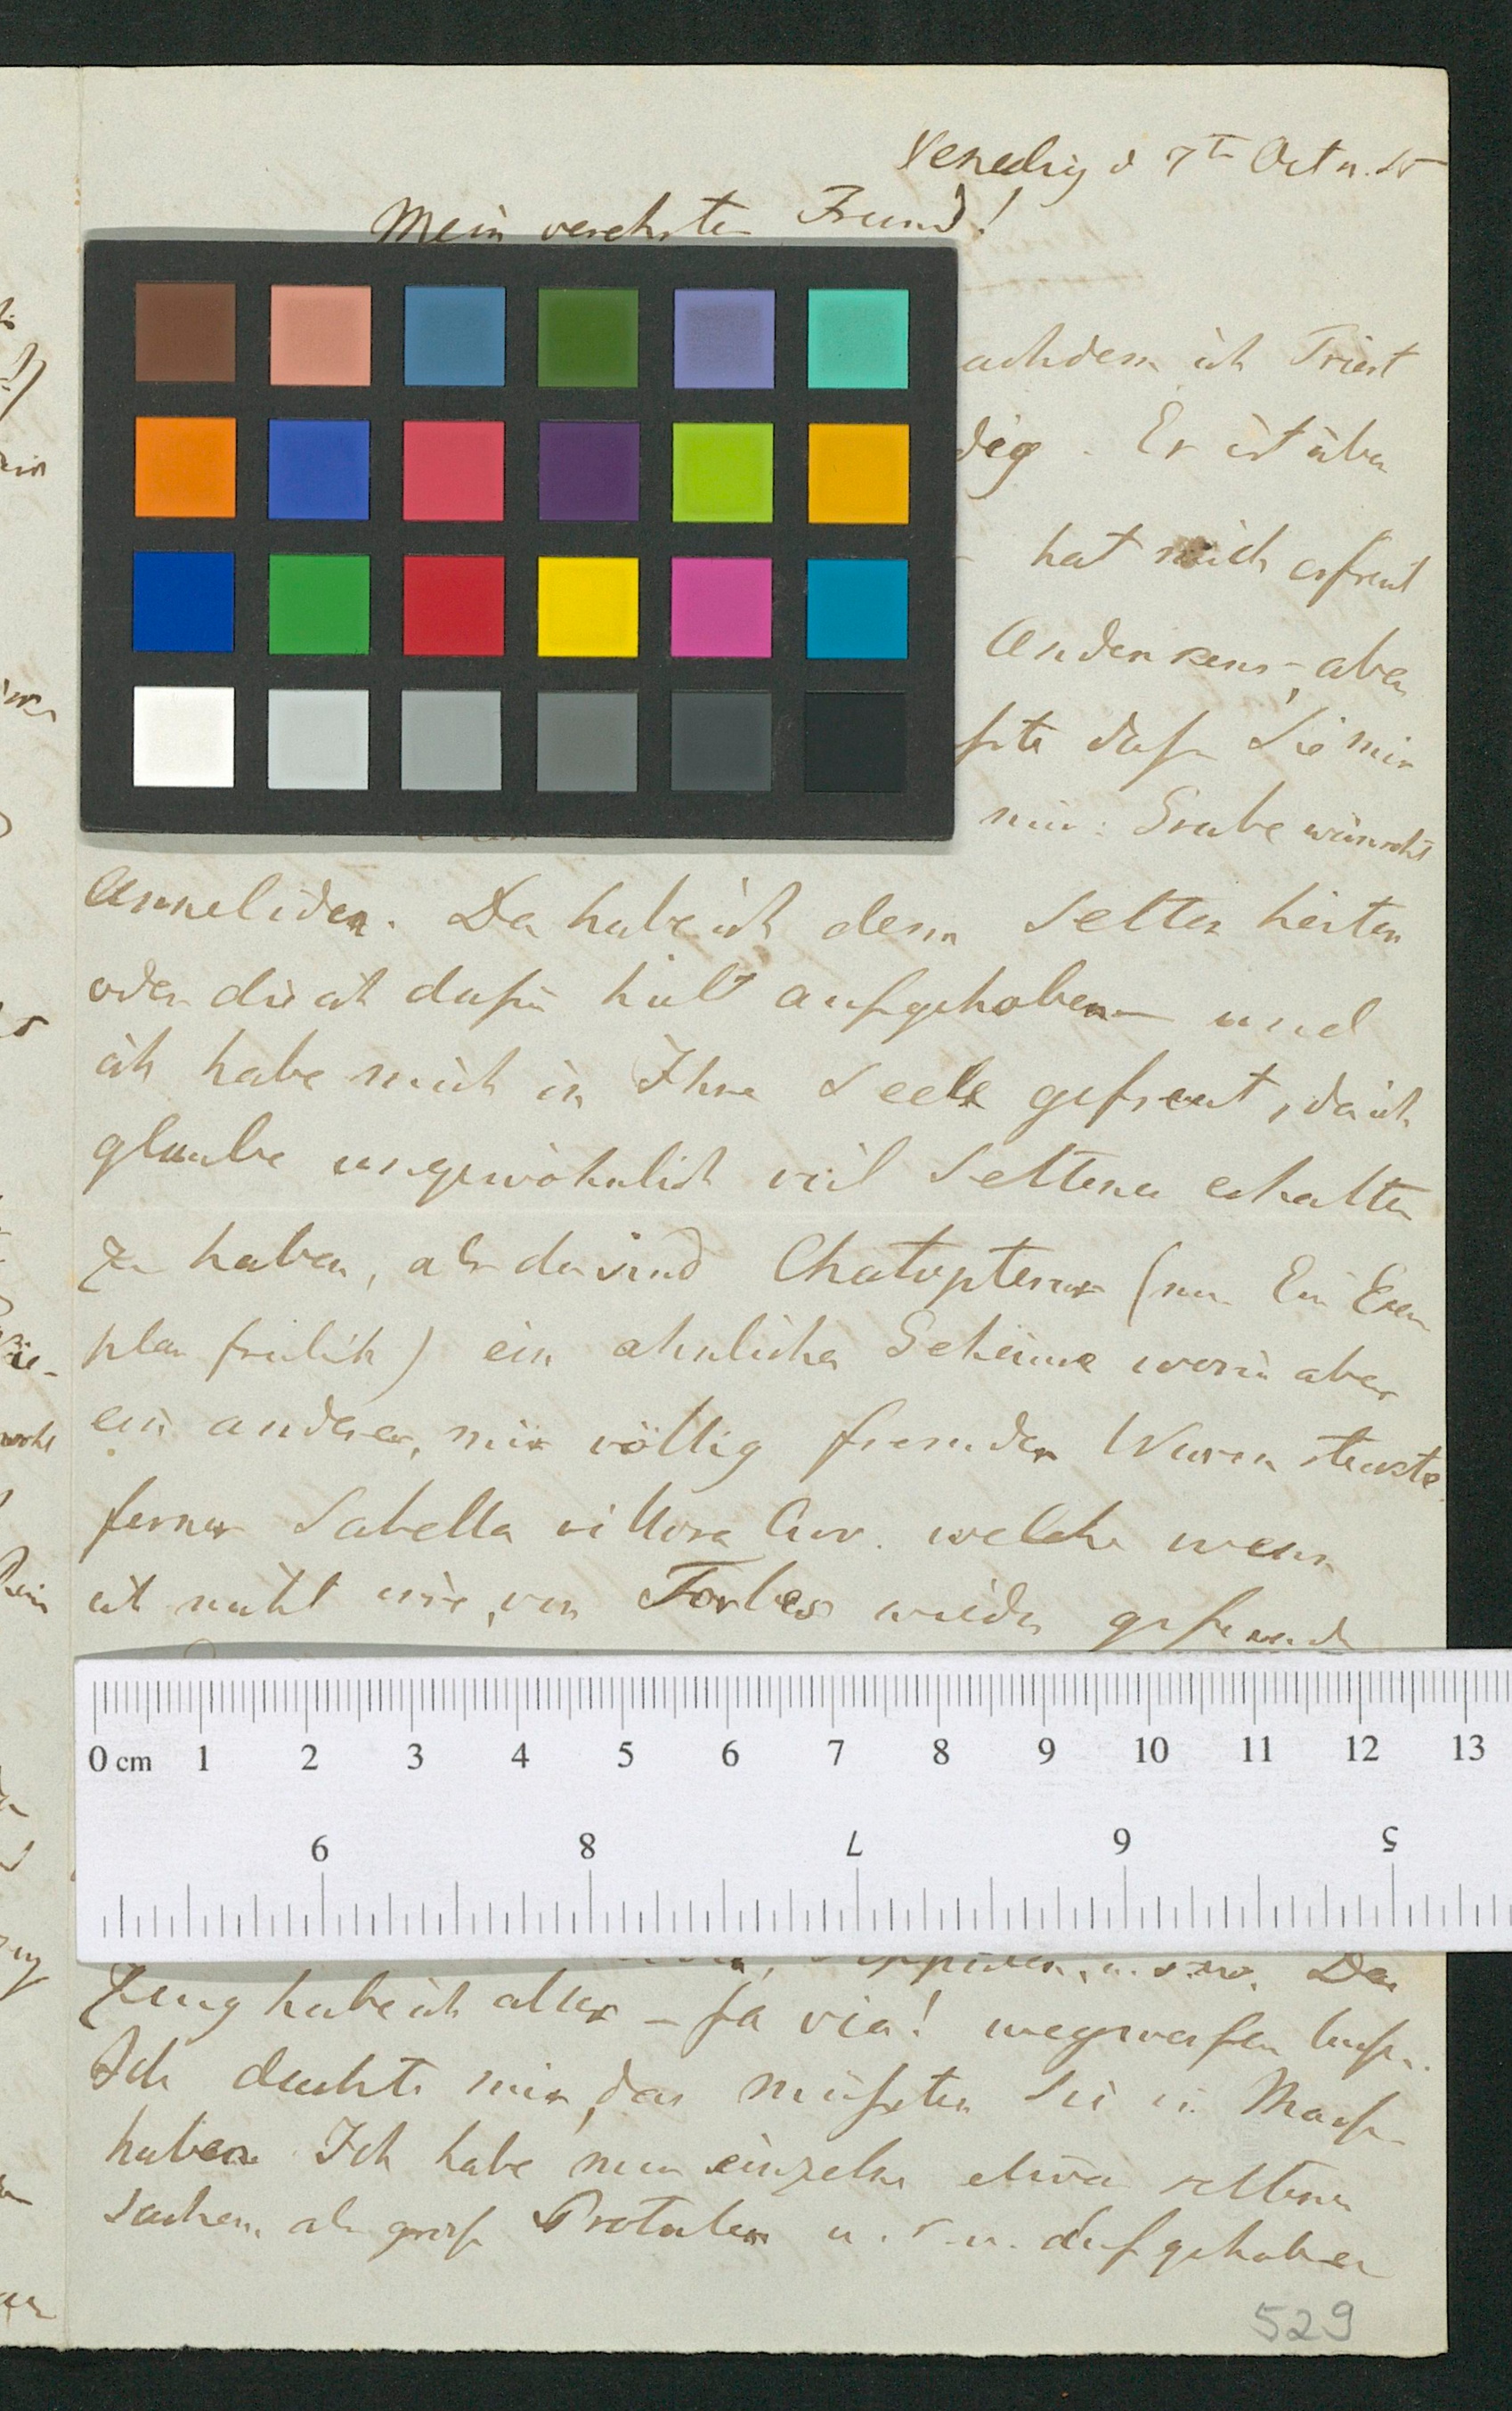 Venedig d 7t Octr.
Mein verehrter Freund!
achdem ich Triest
dig. Er ist über
hat mich erfreut
Andenkens, aber
ßte daß Sie mir
mir: Grube wünscht
Anneliden. Da habe ich denn Seltenheiten
oder die ich dafür hielt aufgehoben — und
ich habe mich in Ihre Seele gefreut, da ich
glaube ungewöhnlich viel Seltenes erhalten
zu haben, als da sind Chatopterus (nur Ein Exem
plar freilich) ein ähnliches Gehäuse worin aber
ein anderer, mir völlig fremder Wurm steckte
ferner Sabella villosa Cuv. welche wenn
ich nicht irre, von Forbes wieder gefunden
0 cm 1 2 3 4 5 6 7 8 9 10 11 12 13
9 8 7 6 5
u.s.w. Das
Zeug habe ich alles — fa via! wegwerfen lassen.
Ich dachte mir, das müßten Sie in Masse
haben. Ich habe nur einzelne etwas seltene
Sachen, als große Protulen u.s.w. aufgehoben
529